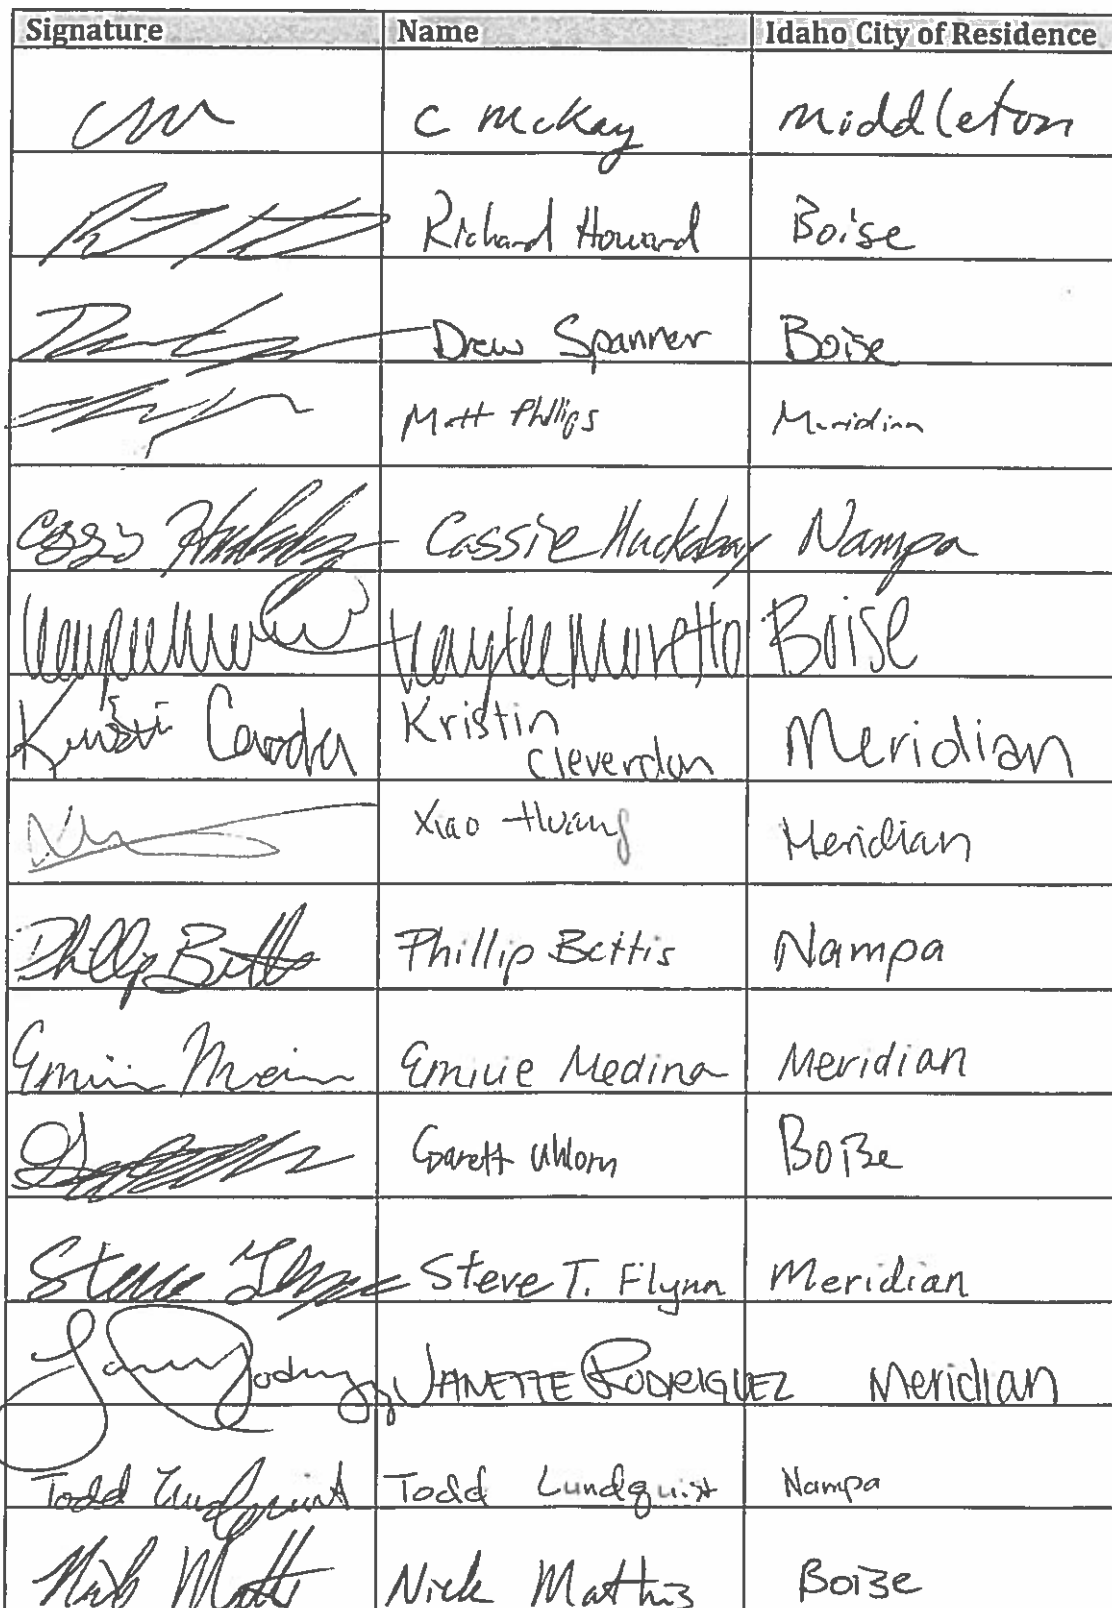 Signature Name Idaho City of Residence
C McKay Middleton
Richard Howard Boise
Drew Spanner Boise
Matt Phillips Meridian
Cassie Huckabay Cassie Huckabay Nampa
Kaytee Moretto Boise
Kristin Meridian
Cleverdon
Xiao Huang Meridian
Phillip Bettis Phillip Bettis Nampa
Emilie Medina Meridian
Garett Uhlorn Boise
Steve Steve T. Flynn Meridian
JANETTE RODRIGUEZ Meridian
Todd Lundquist Todd Lundquist Nampa
Nick Mathis Boise